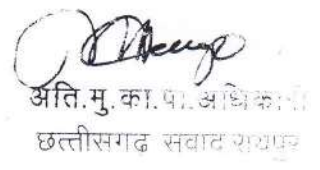 अति.मु.का.पा.अधिकारी
छत्तीसगढ संवाद रायपुर